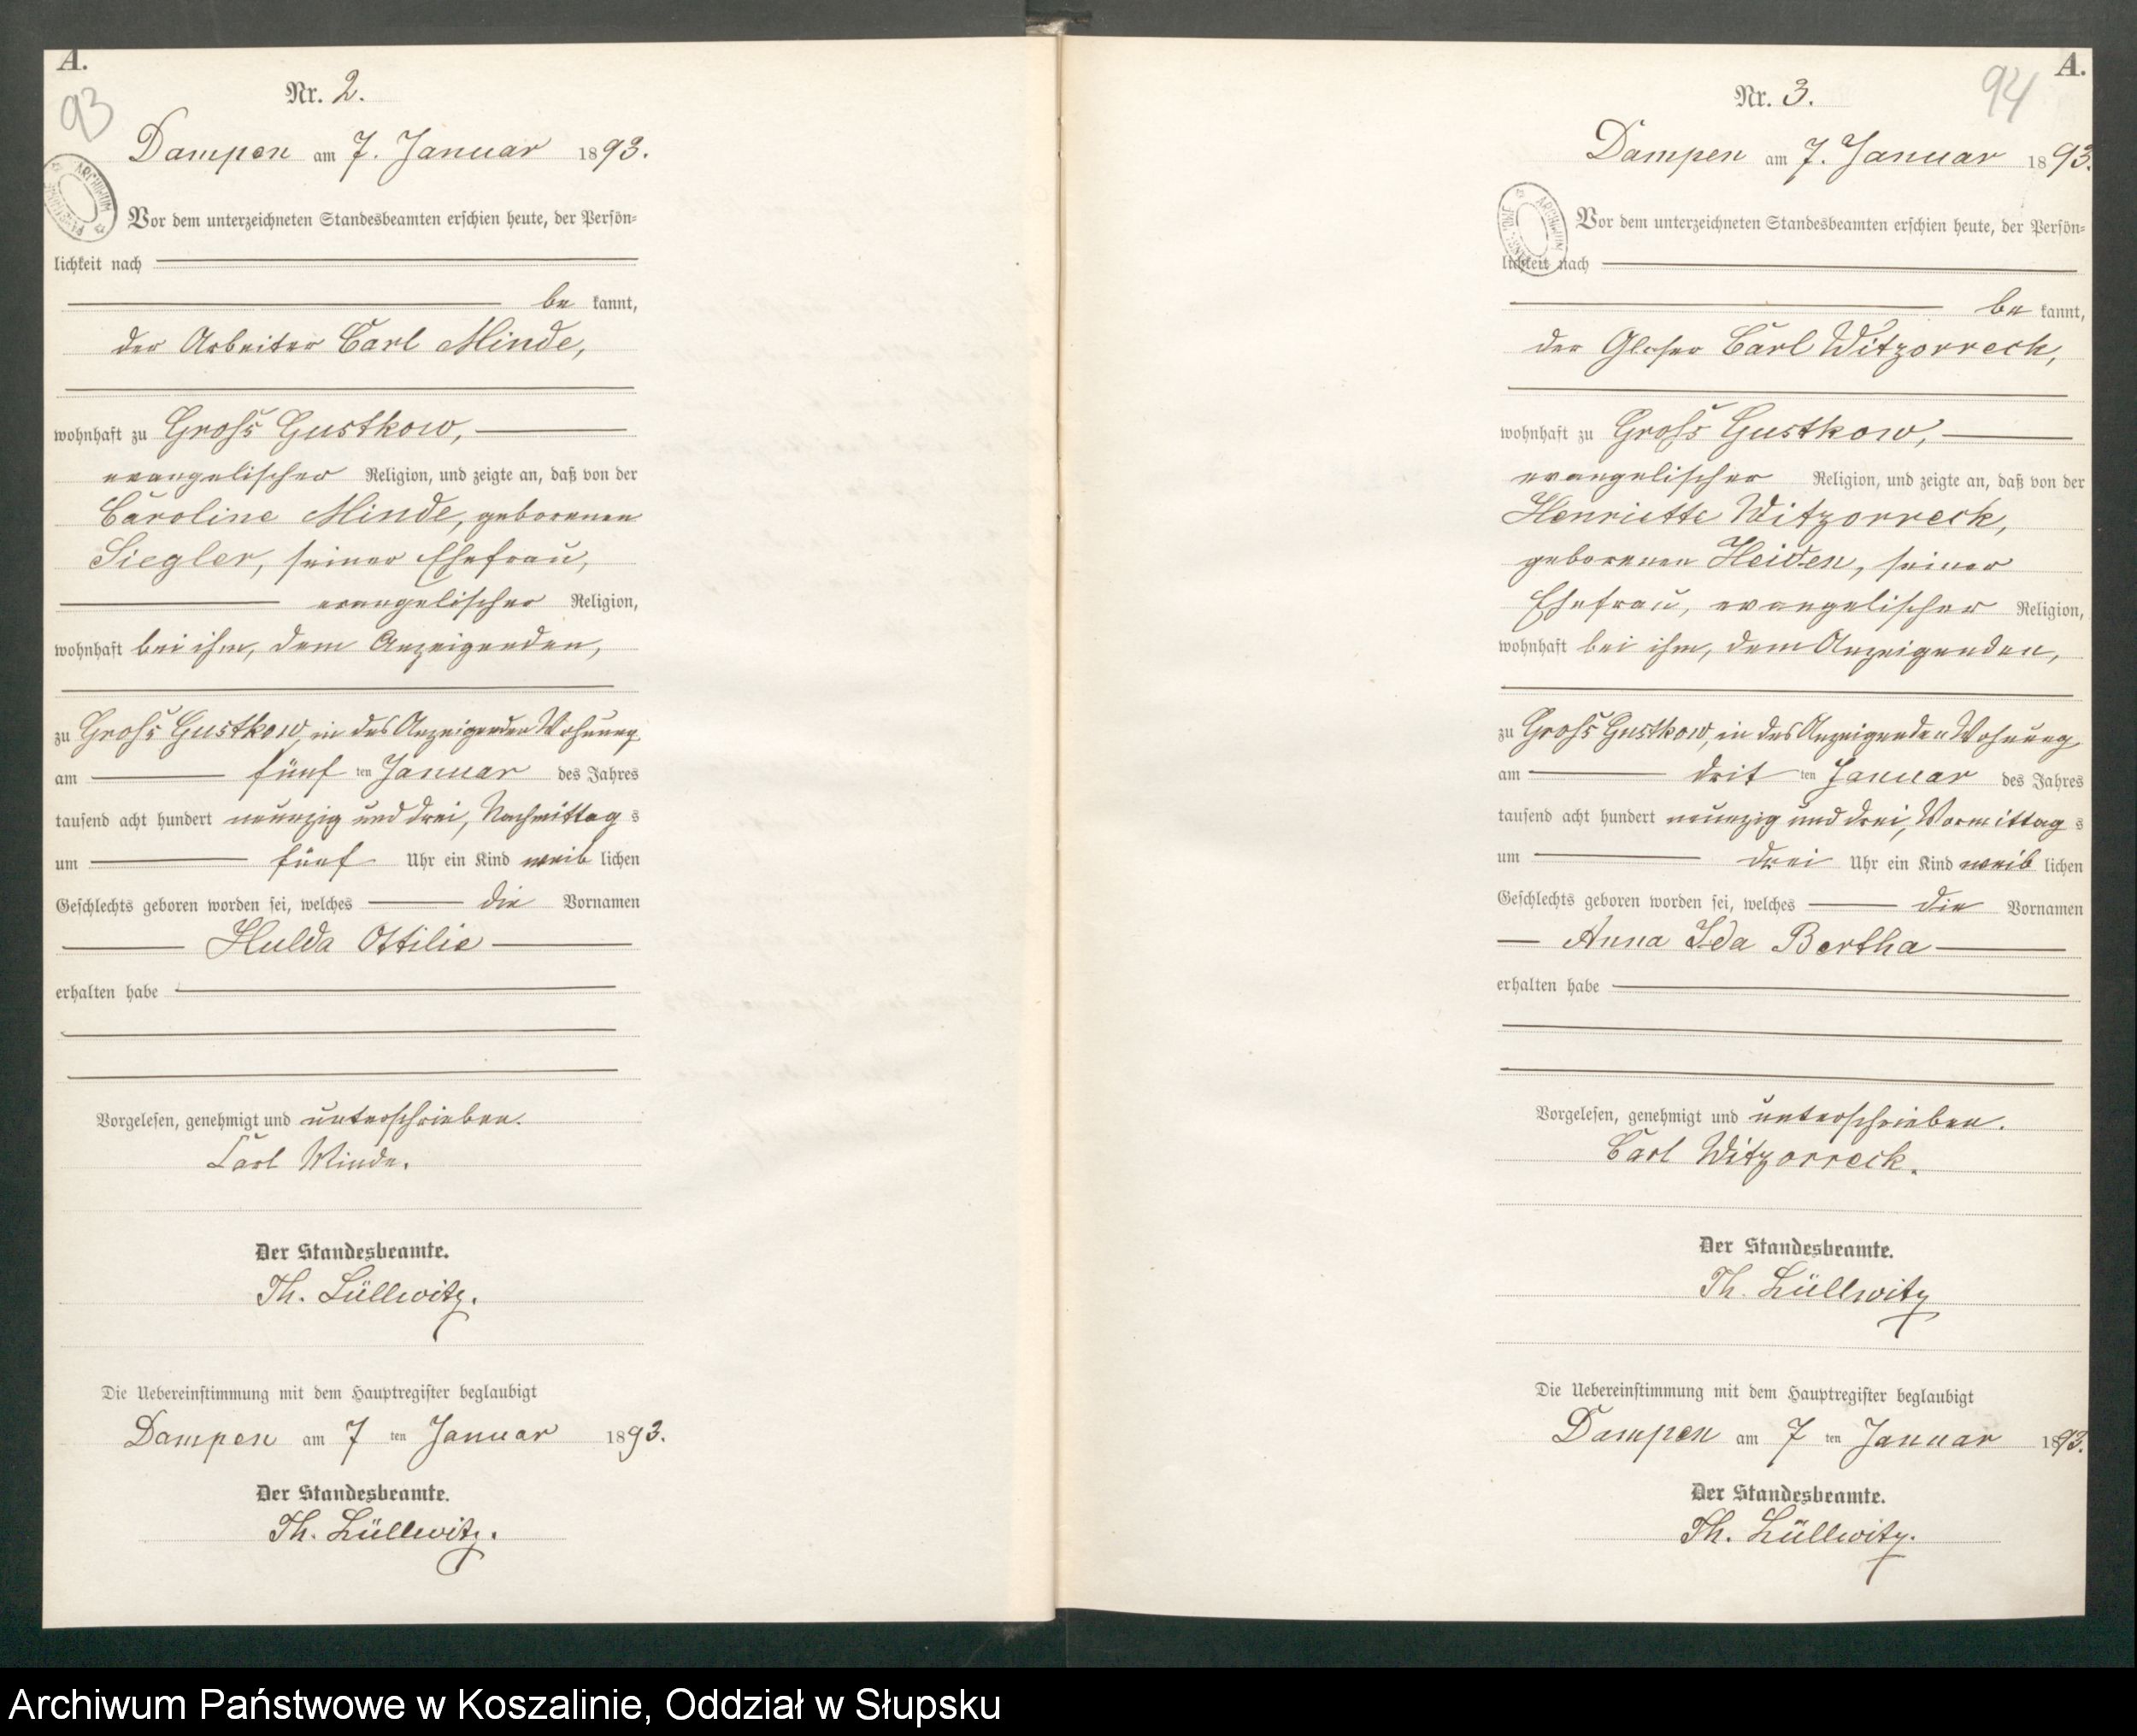 A.
93
Nr. 2.
Dampen am 7. Januar 1893.
ARCHIWUM
Vor dem unterzeichneten Standesbeamten erschien heute, der Persön-
lichkeit nach
be kannt,
der Arbeiter Carl Minde,
wohnhaft zu Gross Gustkow,
evangelischer Religion, und zeigte an, daß von der
Caroline Minde, geborenen
Siegler, seiner Ehefrau,
evangelischer Religion,
wohnhaft bei ihm, dem Anzeigenden,
zu Gross Gustkow, in des Anzeigenden Wohnung
am fünf ten Januar des Jahres
tausend acht hundert neunzig und drei, Nachmittag s
um fünf Uhr ein Kind weib lichen
Geschlechts geboren worden sei, welches die Vornamen
Hulda Ottilie
erhalten habe
Vorgelesen, genehmigt und unterschrieben.
Carl Minde.
Der Standesbeamte.
Th. Lüllwitz.
Die Uebereinstimmung mit dem Hauptregister beglaubigt
Dampen am 7 ten Januar 1893.
Der Standesbeamte.
Th. Lüllwitz.
A.
94
Nr. 3.
Dampen am 7. Januar 1893.
ARCHIWUM
Vor dem unterzeichneten Standesbeamten erschien heute, der Persön-
lichkeit nach
be kannt,
der Glaser Carl Witzorreck,
wohnhaft zu Gross Gustkow,
evangelischer Religion, und zeigte an, daß von der
Henriette Witzorreck,
geborenen Heiden, seiner
Ehefrau, evangelischer Religion,
wohnhaft bei ihm, dem Anzeigenden,
zu Gross Gustkow, in des Anzeigenden Wohnung
am drit ten Januar des Jahres
tausend acht hundert neunzig und drei, Vormittag s
um drei Uhr ein Kind weib lichen
Geschlechts geboren worden sei, welches die Vornamen
Anna Ida Bertha
erhalten habe
Vorgelesen, genehmigt und unterschrieben.
Carl Witzorreck.
Der Standesbeamte.
Th. Lüllwitz
Die Uebereinstimmung mit dem Hauptregister beglaubigt
Dampen am 7 ten Januar 1893.
Der Standesbeamte.
Th. Lüllwitz.
Archiwum Państwowe w Koszalinie, Oddział w Słupsku